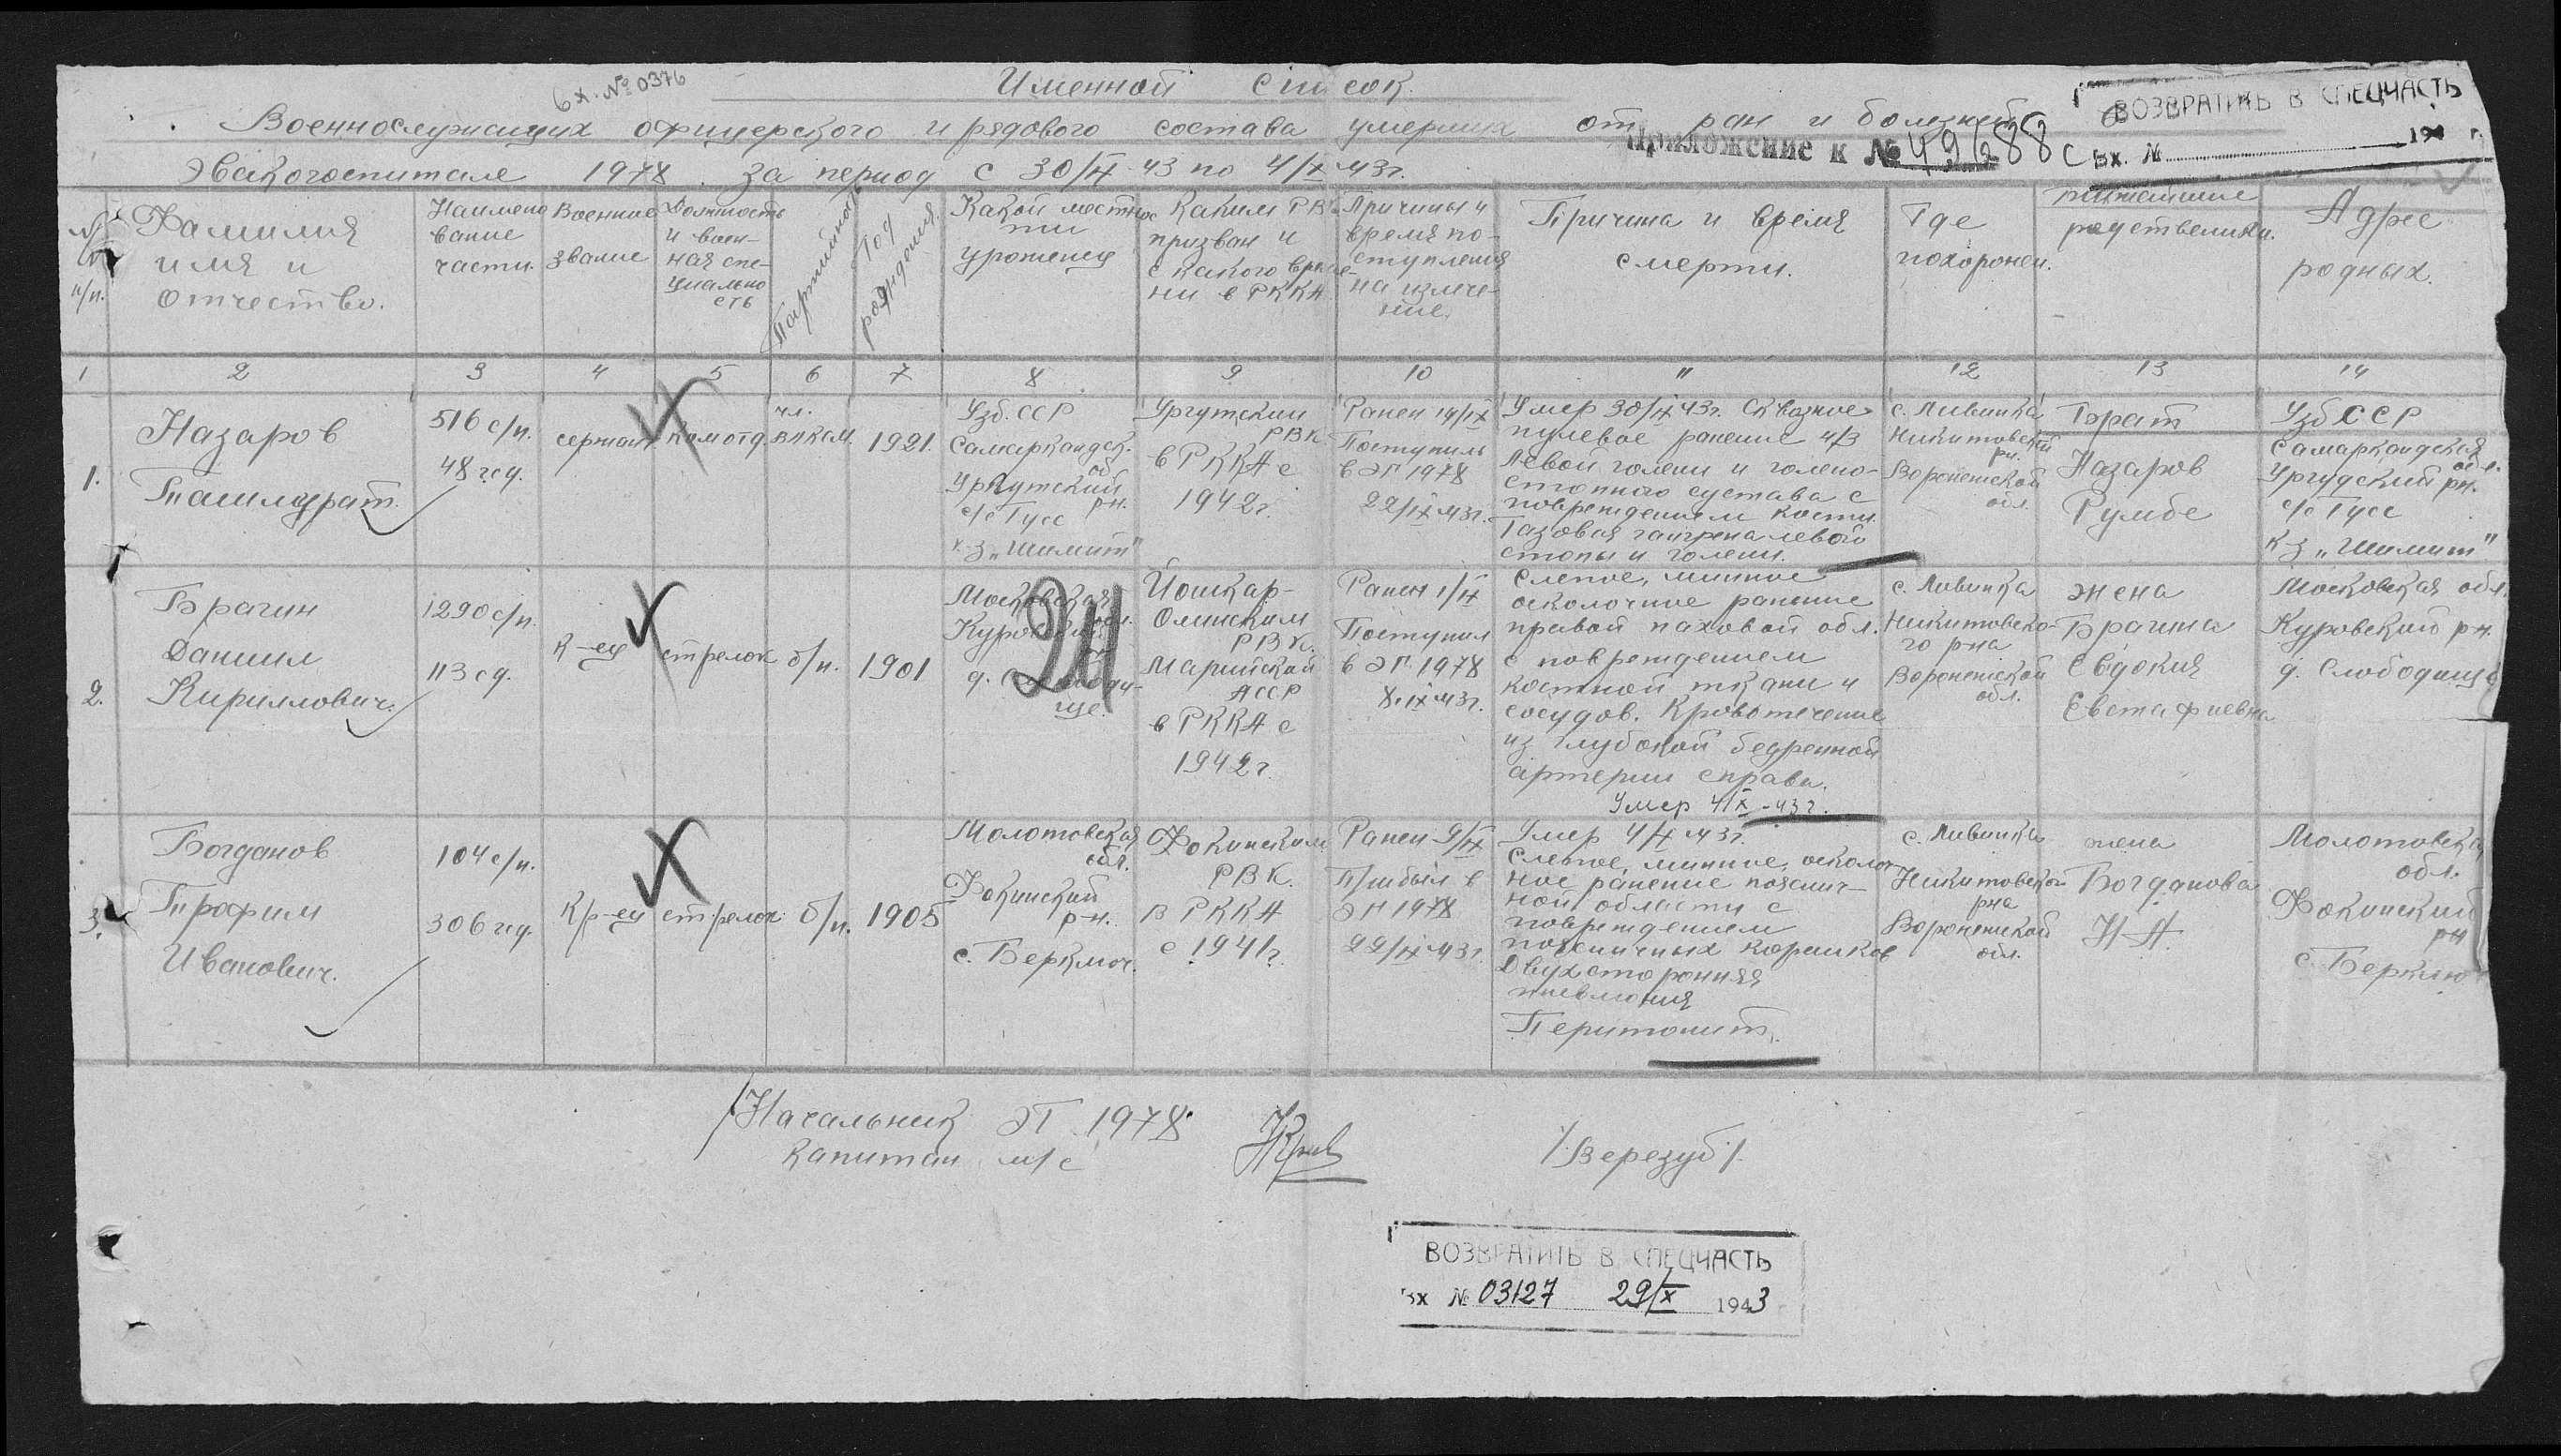 вх. № 0376
Именной список
Военнослужащих офицерского и рядового состава умерших от ран и болезней в
Эвакогоспитале 1978 за период с 30/IX-43 по 4/X 43г.
ВОЗВРАТИТЬ В СПЕЦЧАСТЬ
Вх. № 194 г.
Приложение к № 49288с
№ п/п.
Фамилия имя и отчество.
Наименование части.
Военное звание
Должность и военная специальность
Партийность
Год рождения.
Какой местности уроженец
Каким РВК призван и с какого времени в РККА
Причины и время поступления на излечение.
Причина и время смерти.
Где похоронен.
Ближайшие родственники.
Адрес родных.
1 2 3 4 5 6 7 8 9 10 11 12 13 14
1.
Назаров
Ташмурат.
516 с/п.
48 гсд.
сержант
ком отд.
чл.
ВЛКСМ.
1921.
Узб. ССР
Самаркандск.
об.
Ургутский
рн.
с/с Гусс
к-з „Шишит"
Ургутским
РВК
в РККА с
1942г.
Ранен 14/IX
Поступил
в ЭГ 1978
22/IX 43г.
Умер 30/IX 43г. Сквозное
пулевое ранение н/3
левой голени и голено-
стопного сустава с
повреждением кости.
Газовая гангрена левой
стопы и голени.
с. Ливинка
Никитовский
рн.
Воронежской
обл.
Брат
Назаров
Румбе
Узб ССР
Самаркандская
обл.
Ургудский рн.
с/с Гусс
к-з „Шишит"
2.
Брагин
Даниил
Кириллович.
1290 с/п.
113 сд.
к-ец
стрелок
б/п.
1901
Московская
обл.
24
д.
ще.
Йошкар-
Олинским
РВК.
Марийской
АССР
в РККА с
1942г.
Ранен 1/IX
Поступил
в ЭГ 1978
8.IX 43г.
Слепое, минное
осколочное ранение
правой паховой обл.
с повреждением
костной ткани и
сосудов. Кровотечение
из глубокой бедренной
артерии справа.
Умер 4/X-43г.
с. Ливинка
Никитовско-
го рна
Воронежской
обл.
жена
Брагина
Евдокия
Евстафиевна
Московская обл.
Куровский рн.
д. Слободище
3.
Богданов
Трофим
Иванович.
104 с/п.
306 сд.
Кр-ец
стрелок
б/п.
1905
Молотовская
обл.
Фокинский
р-н.
с. Беркмоч.
Фокинским
РВК.
в РККА
с 1941г.
Ранен 9/IX
Прибыл в
ЭГ 1978
22/IX 43г.
Умер 4/X 43г.
Слепое, минное, осколоч-
ное ранение пояснич-
ной области с
повреждением
поясничных корешков
Двухсторонняя
пневмония
Перитонит.
с. Ливинка
Никитовской
рна
Воронежской
обл.
жена
Богданова
Н-А.
Молотовская
обл.
Фокинский
рн
с. Беркмо
Начальник ЭГ 1978
капитан м/с
/Верезуб/
ВОЗВРАТИТЬ В СПЕЦЧАСТЬ
Вх № 03127 29/X 1943